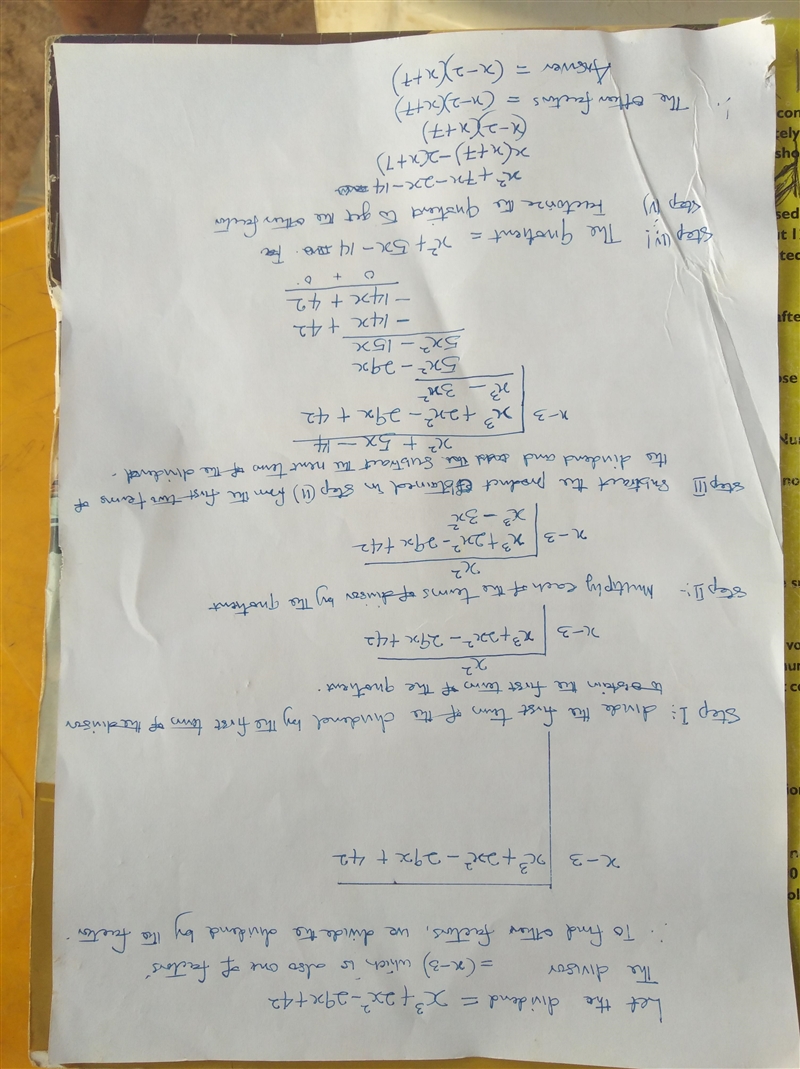 Let the dividend = x³+2x²-29x+42
The divisor = (x-3) which is also one of factors
∴ To find other factors, we divide the dividend by the factor.
x-3 x³+2x²-29x+42
Step I: divide the first term of the dividend by the first term of the divisor
to obtain the first term of the quotient.
x²
x-3 x³+2x²-29x+42
Step II:- Multiply each of the terms of divisor by the quotient
x²
x-3 x³+2x²-29x+42
x³-3x²
Step III Subtract the product obtained in step (II) from the first two terms of
the dividend and the subtract the next term of the dividend.
x² + 5x - 14
x-3 x³+2x²-29x+42
x³ - 3x²
5x² - 29x
5x² - 15x
-14x + 42
-14x + 42
0 + 0
Step IV: The quotient = x² + 5x - 14
Step IV) Factorize the quotient to get the other factor
x² + 7x - 2x - 14
x(x+7) - 2(x+7)
(x-2)(x+7)
∴ The other factors = (x-2)(x+7)
Answer = (x-2)(x+7)